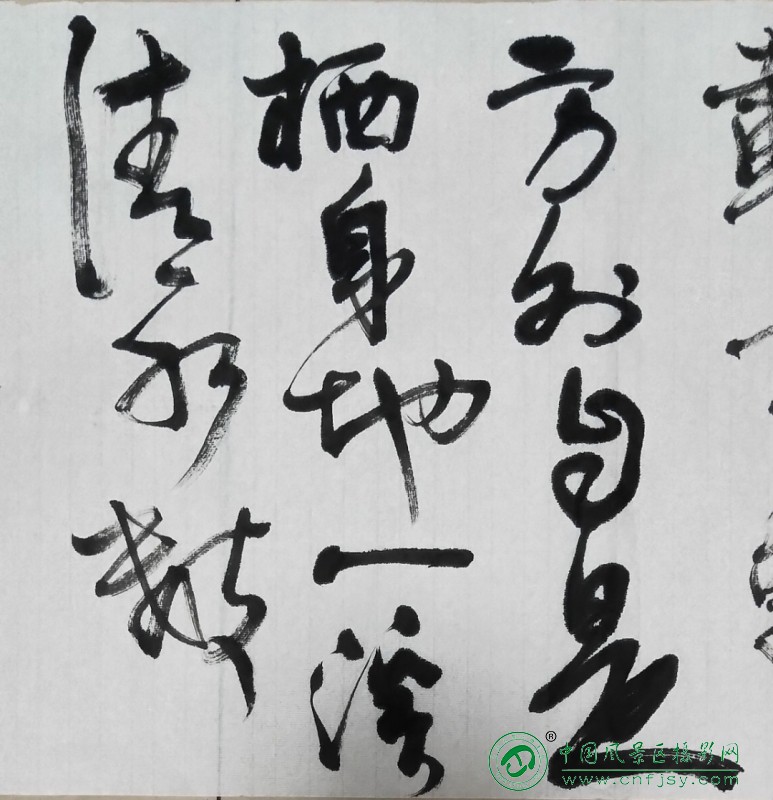 方外自是
栖身地一溪
清水数
®中国风景区摄影网
www.cnfjsy.com